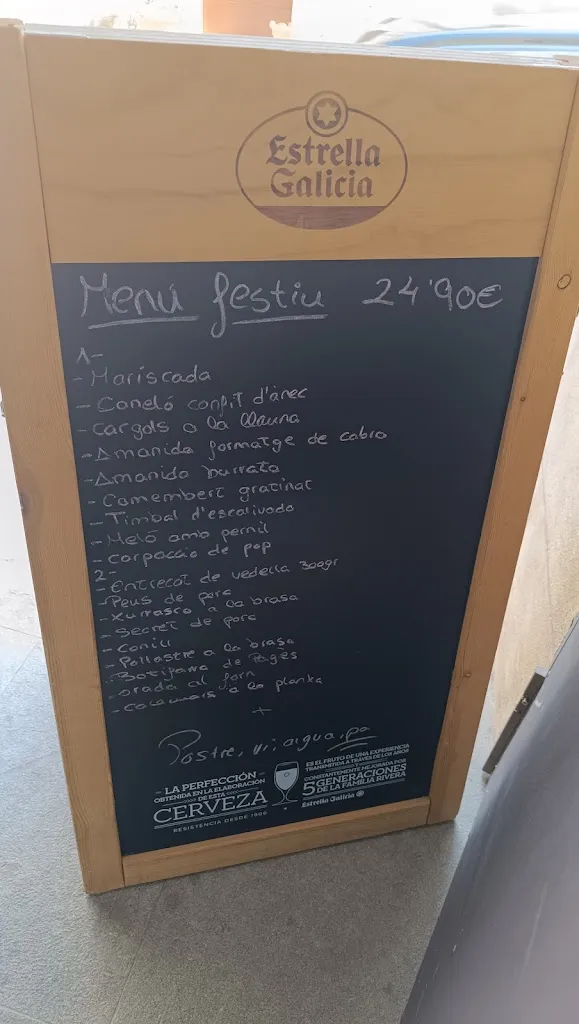 Estrella
Galicia
Menú festiu 24'90€
1-
- Mariscada
- Caneló confit d'ànec
- Cargols a la llauna
- Amanida formatge de cabra
- Amanida burrata
- Camembert gratinat
- Timbal d'escalivada
- Meló amb pernil
- Carpaccio de pop
2-
- Entrecot de vedella 300gr
- Peus de porc
- Xurrasco a la brasa
- Secret de porc
- Conill
- Pollastre a la brasa
- Botifarra de Pagès
- orada al forn
- Calamars a la planxa
+
Postre, vi, aigua, pa
- LA PERFECCIÓN -
OBTENIDA EN LA ELABORACIÓN
DE ESTA
CERVEZA
RESISTENCIA DESDE 1906
ES EL FRUTO DE UNA EXPERIENCIA
TRANSMITIDA A TRAVÉS DE LOS AÑOS
CONSTANTEMENTE MEJORADA POR
5 GENERACIONES
DE LA FAMILIA RIVERA
Estrella Galicia